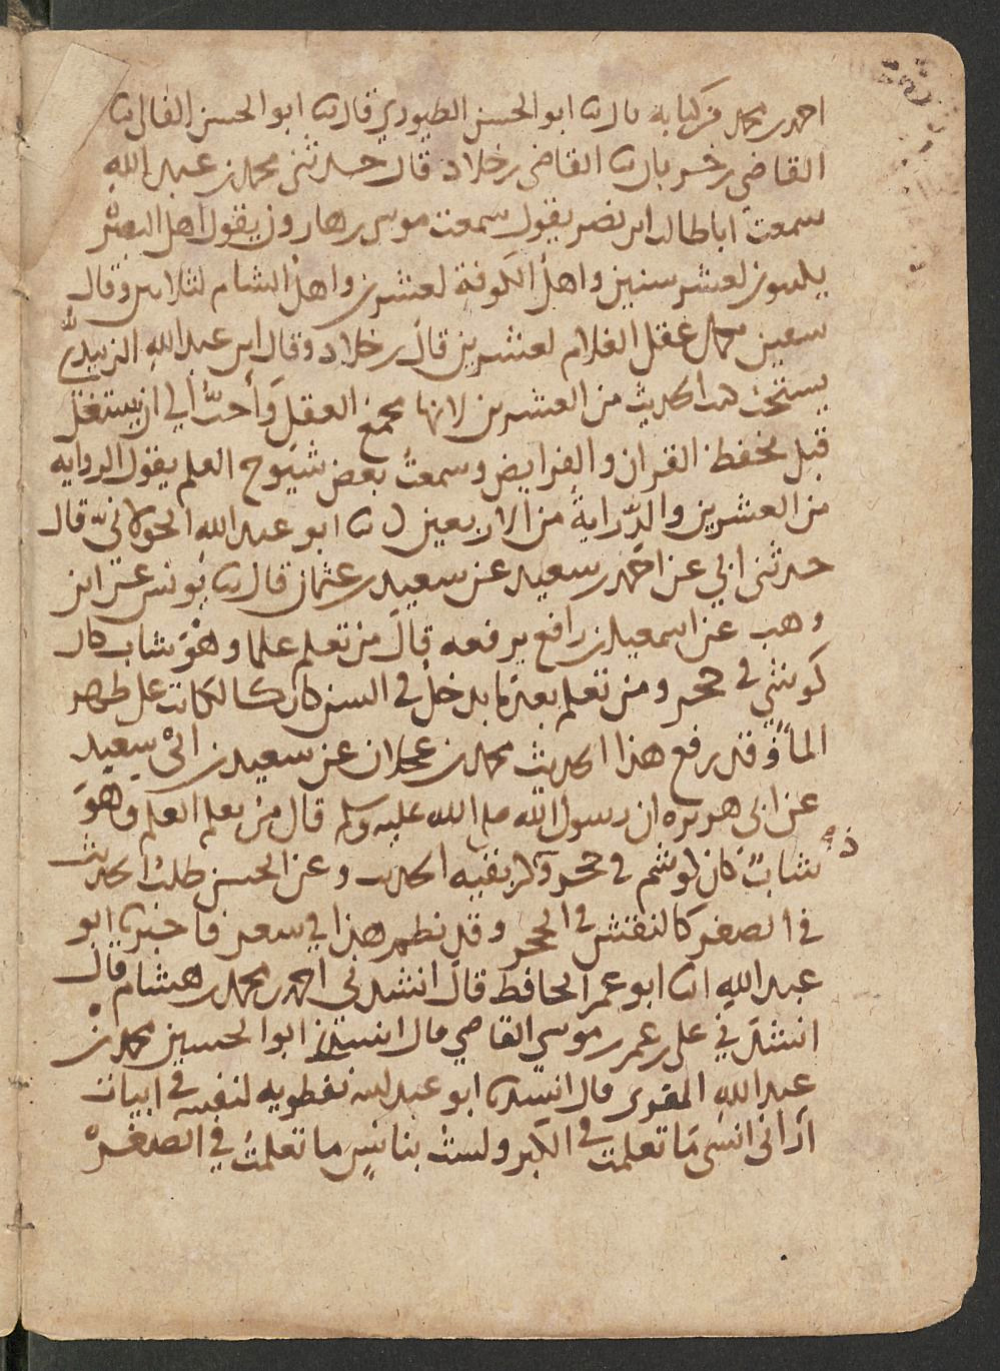 احمد بن محمد من كتابه قال نا ابو الحسن الطيوري قال نا ابو الحسن الفالي نا
القاضي بن خربان نا القاضي بن خلاد قال حدثني محمد بن عبد الله
سمعت اباطالب ابن نصر يقول سمعت موسى بن هارون يقول اهل البصرة
يكتبون لعشر سنين واهل الكوفة لعشرين واهل الشام لثلاثين وقال
سفين كمال عقل الغلام لعشرين قال بن خلاد وقال ابو عبد الله الزبيري
يستحب كتب الحديث من العشرين لانها مجمع العقل وأحبُّ الي ان يستغل
قبل بحفظ القران والفرايض وسمعت بعض شيوخ العلم يقول الروايه
من العشرين والدّراية من الاربعين نا ابو عبد الله الخولانيّ قال
حدثني ابي عن احمد بن سعيد عن سعيد بن عثمان قال نا يونس عن ابن
وهب عن اسمعيل بن رافع يرفعه قال من تعلم علما وهو شاب كان
كوشي في حجر ومن تعلم بعد ما يدخل في السن كان كالكاتب على ظهر
الماء وقد رفع هذا الحديث محمد بن عجلان عن سعيد بن ابي سعيد
عن ابي هريرة ان رسول الله صلى الله عليه وسلم قال من تعلم العلم وهو
شابٌ كان كوشم في حجر وذكر بقيه الحديث وعن الحسن طلب الحديث
في الصغر كالنقش في الحجر وقد نظم هذا في شعر فاخبرنا ابو
عبد الله انا ابو عمر الحافظ قال انشدني احمد بن محمد بن هشام قال
انشدني علي بن عمر بن موسى القاضي قال انشدنا ابو الحسين محمد بن
عبد الله المقري قال انشدنا ابو عبد الله نفطويه لنفسه في ابيات
أراني انسى ما تعلمت في الكبر ولست بناسٍ ما تعلمت في الصغر